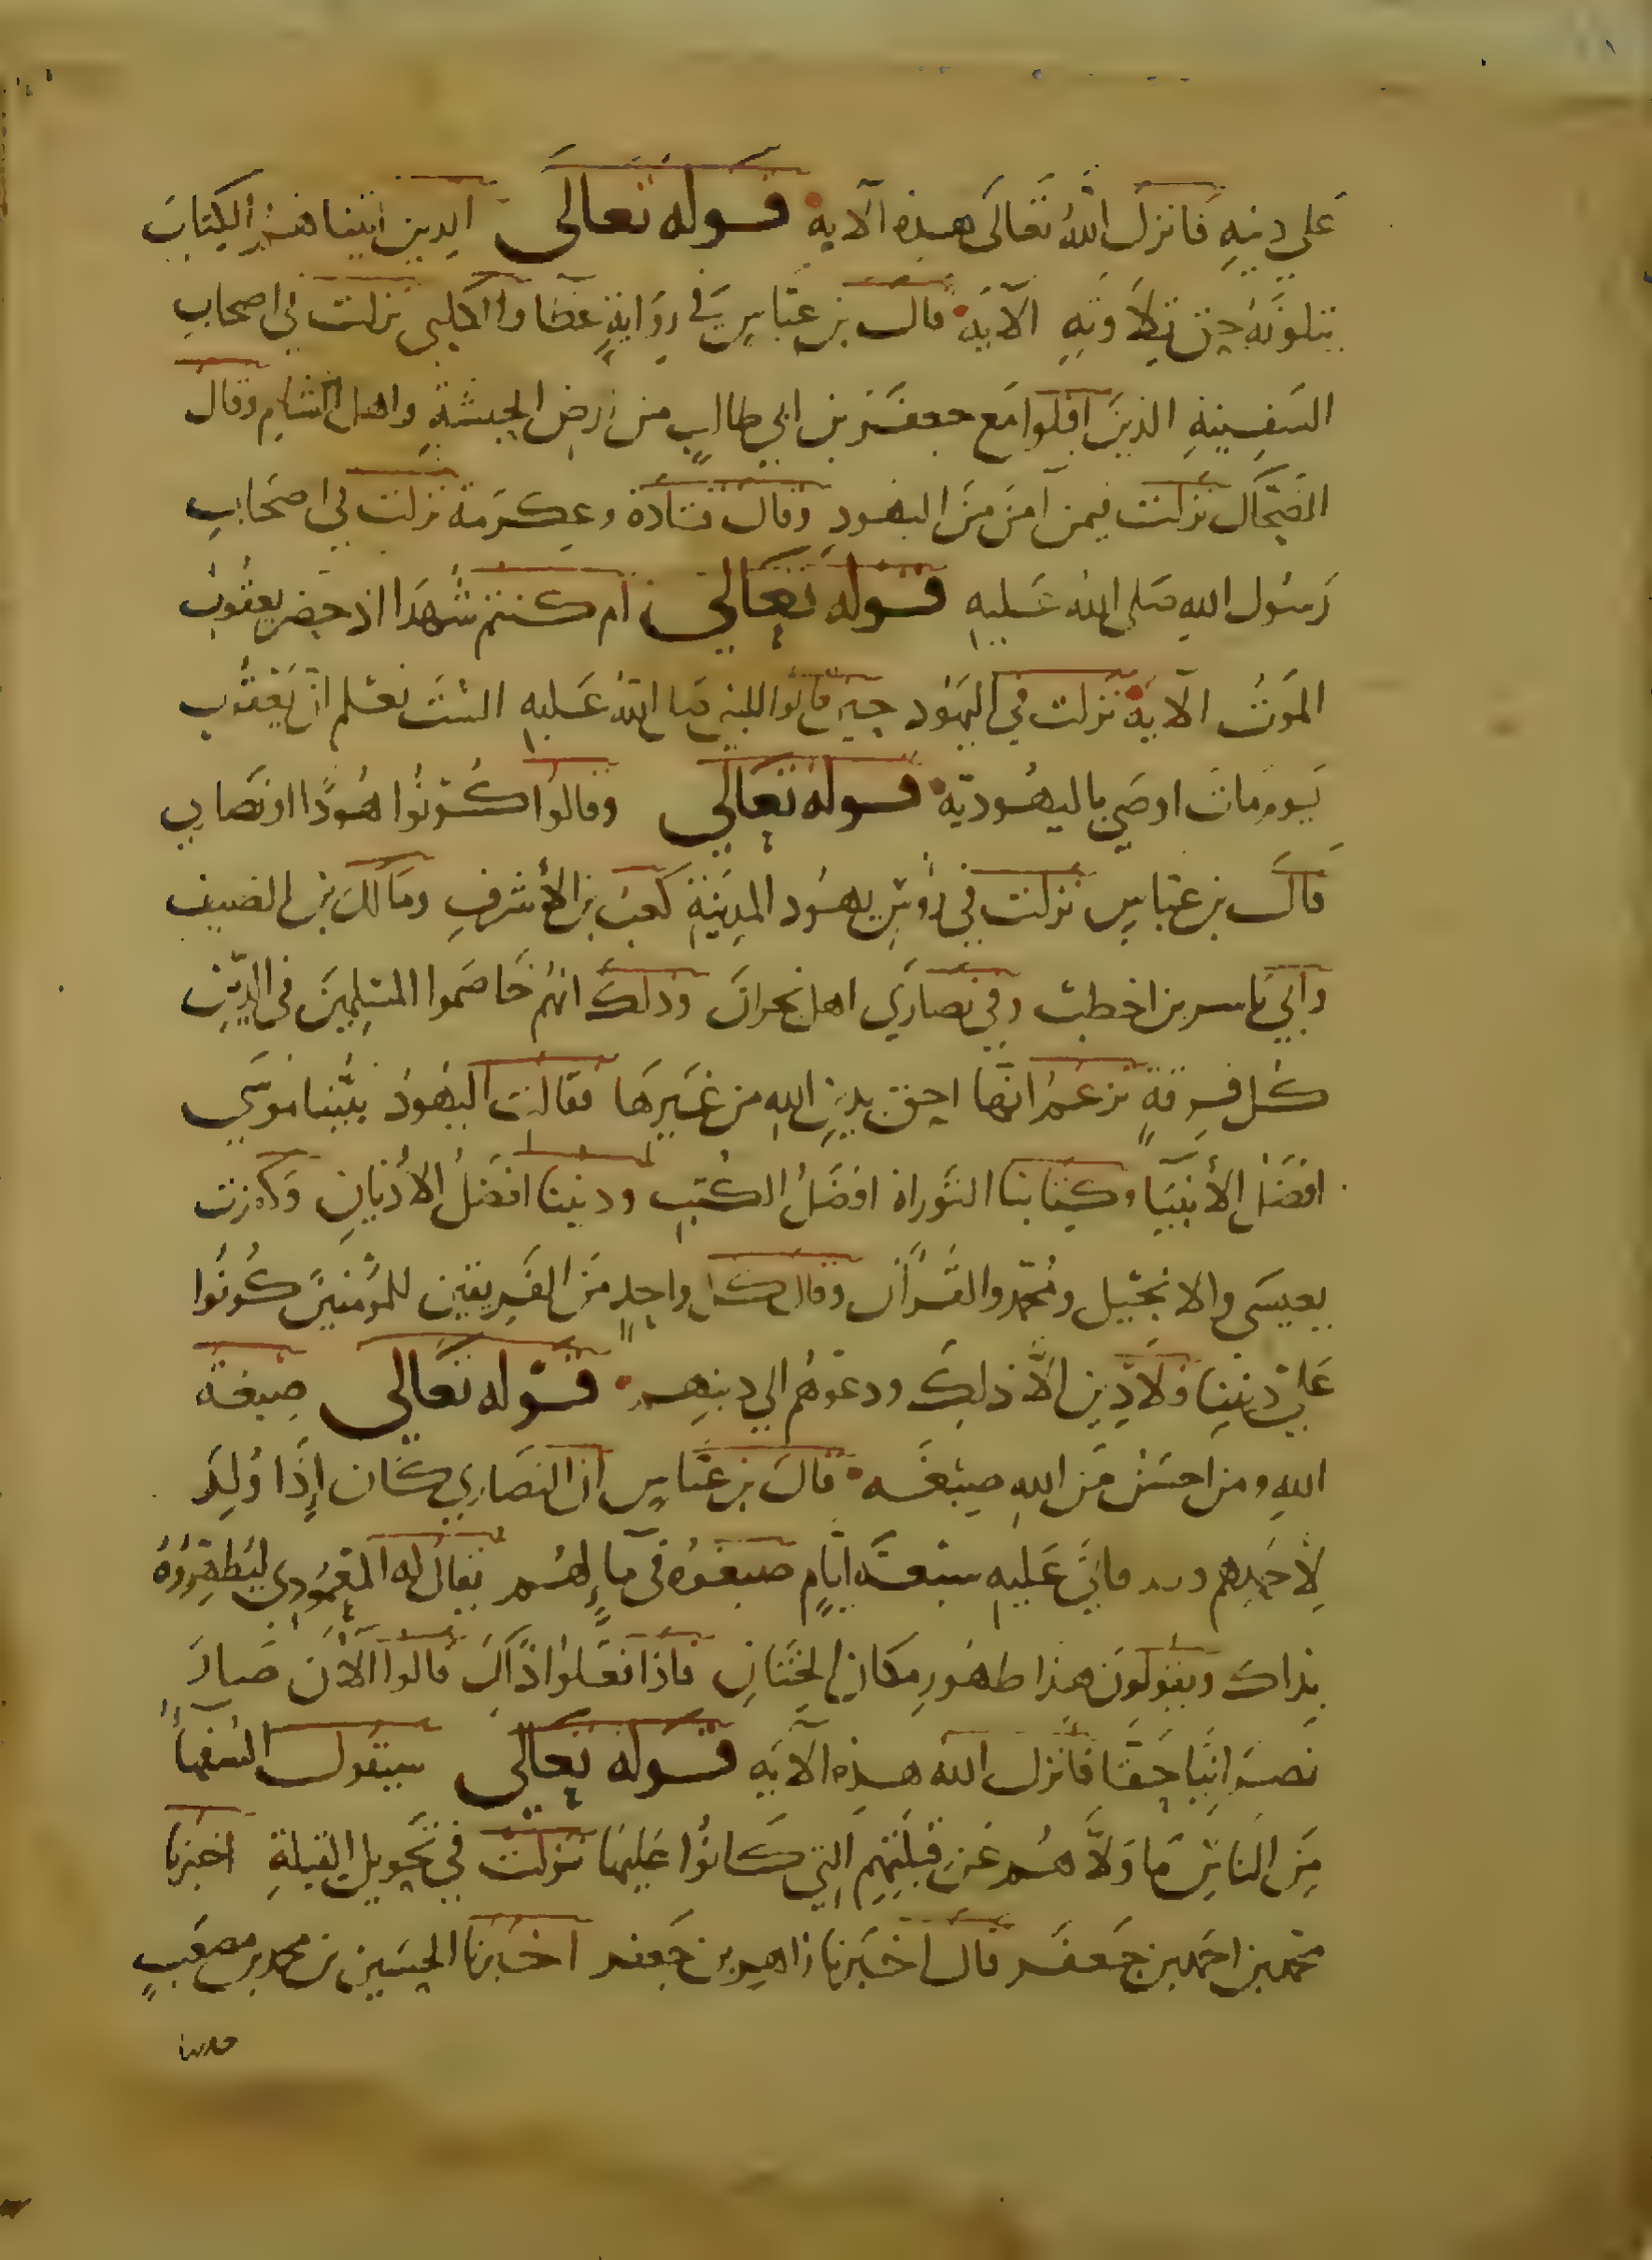 على دينه فانزل الله تعالى هذه الآية قوله تعالى الذين اتيناهم الكتاب
يتلونه حق تلاوته الآية قال بن عباس في رواية عطا والكلبي نزلت في اصحاب
السفينة الذين اقبلوا مع جعفر بن ابي طالب من ارض الحبشة واهل الشام وقال
الضحاك نزلت فيمن آمن من اليهود وقال قتادة وعكرمة نزلت في اصحاب
رسول الله صلى الله عليه قوله تعالى ام كنتم شهدا اذ حضر يعقوب
الموت الآية نزلت في اليهود حين قالوا للنبي صلى الله عليه الست تعلم ان يعقوب
يوم مات اوصى باليهودية قوله تعالى وقالوا كونوا هودا او نصارى
قال بن عباس نزلت في رؤس يهود المدينة كعب بن الأشرف ومالك بن الضيف
وابي ياسر بن اخطب وفي نصارى اهل نجران وذلك انهم خاصموا المسلمين في الدين
كل فرقة تزعم انها احق بدين الله من غيرها فقالت اليهود نبينا موسى
افضل الأنبيا وكتابنا التوراة افضل الكتب وديننا افضل الاديان وكفرت
بعيسى والانجيل ومحمد والقرآن وقال كل واحد من الفريقين للمؤمنين كونوا
على ديننا فلا دين الا ذلك ودعوهم الي دينهم قوله تعالى صبغة
الله ومن احسن من الله صبغة قال بن عباس ان النصارى كان إذا ولد
لأحدهم ولد فاتى عليه سبعة ايام صبغوه في ماء لهم يقال له المعمودي ليطهروه
بذاك ويقولون هذا طهور مكان الختان فاذا فعلوا ذاك قالوا الآن صار
نصرانيا حقا فانزل الله هذه الآية قوله تعالى سيقول السفهاء
من الناس ما ولاهم عن قبلتهم التي كانوا عليها نزلت في تحويل القبلة اخبرنا
محمد بن احمد بن جعفر قال اخبرنا زاهر بن جعفر اخبرنا الحسين بن محمد بن مصعب